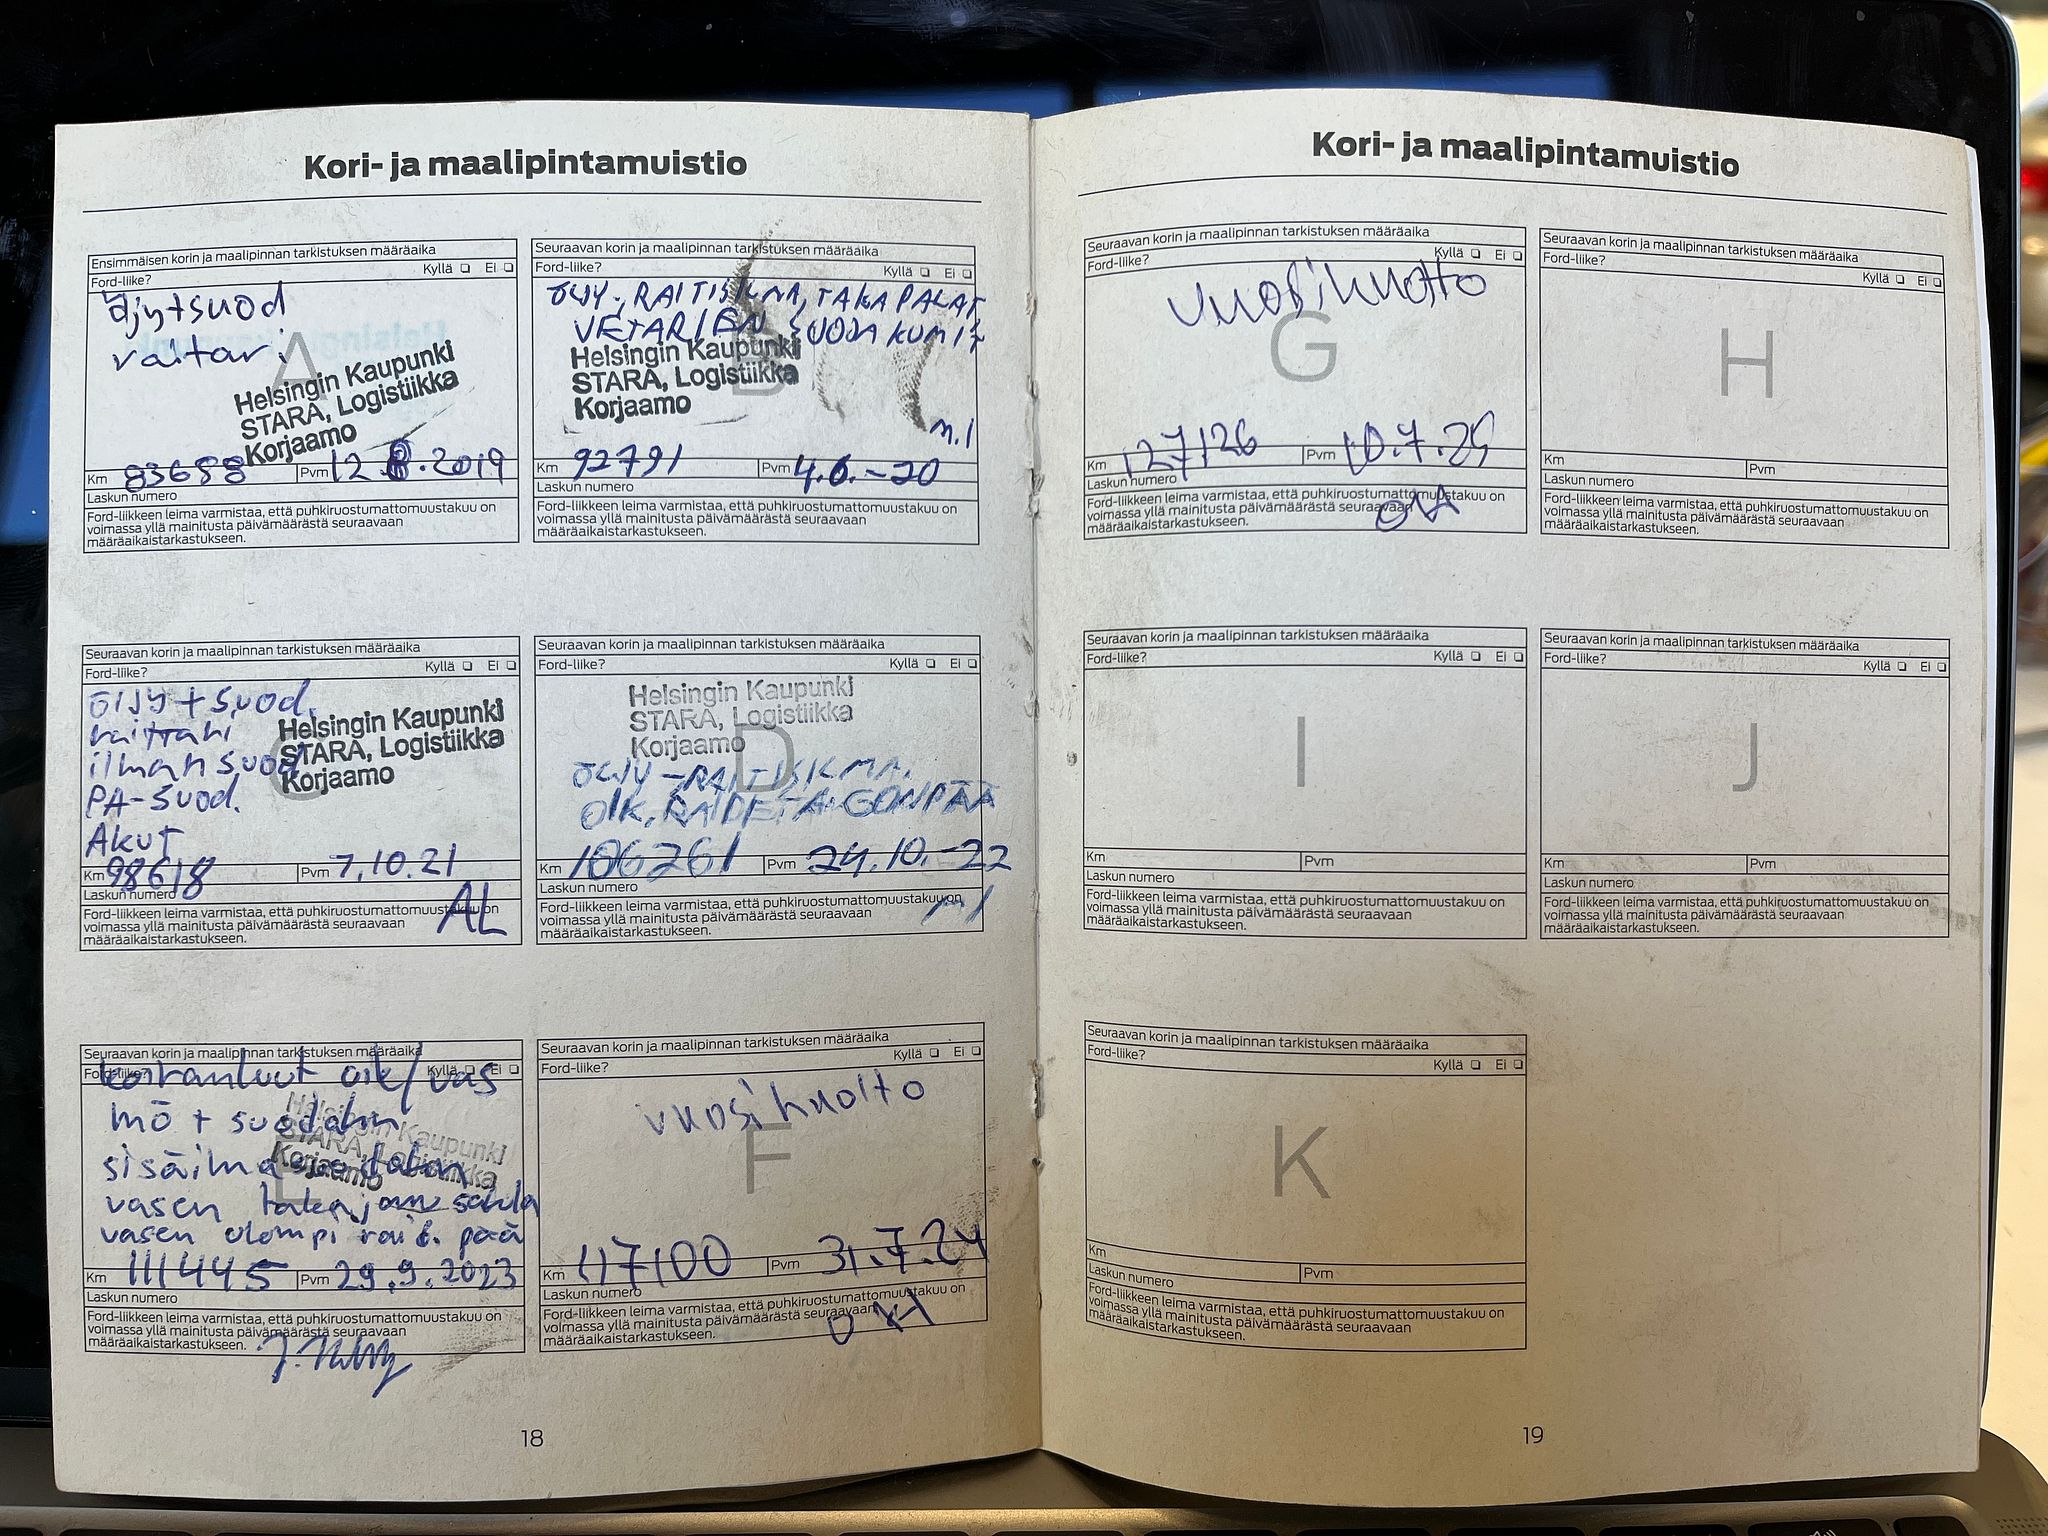 Kori- ja maalipintamuistio
Ensimmäisen korin ja maalipinnan tarkistuksen määräaika
Ford-liike? Kyllä ❏ Ei ❏
öljy+suod
raitari
A
Helsingin Kaupunki
STARA, Logistiikka
Korjaamo
Km 83658 Pvm 12.8.2019
Laskun numero
Ford-liikkeen leima varmistaa, että puhkiruostumattomuustakuu on
voimassa yllä mainitusta päivämäärästä seuraavaan
määräaikaistarkastukseen.
Seuraavan korin ja maalipinnan tarkistuksen määräaika
Ford-liike? Kyllä ❏ Ei ❏
ÖLJY-, RAITISILMA, TAKA PALAT
VETARIEN SUOJA KUMIT
B
Helsingin Kaupunki
STARA, Logistiikka
Korjaamo
m.l
Km 92791 Pvm 4.6.-20
Laskun numero
Ford-liikkeen leima varmistaa, että puhkiruostumattomuustakuu on
voimassa yllä mainitusta päivämäärästä seuraavaan
määräaikaistarkastukseen.
Seuraavan korin ja maalipinnan tarkistuksen määräaika
Ford-liike? Kyllä ❏ Ei ❏
öljy+suod.
raittari
ilman suod
PA-suod.
Akut
C
Helsingin Kaupunki
STARA, Logistiikka
Korjaamo
Km 98618 Pvm 7.10.21
Laskun numero
AL
Ford-liikkeen leima varmistaa, että puhkiruostumattomuustakuu on
voimassa yllä mainitusta päivämäärästä seuraavaan
määräaikaistarkastukseen.
Seuraavan korin ja maalipinnan tarkistuksen määräaika
Ford-liike? Kyllä ❏ Ei ❏
Helsingin Kaupunki
STARA, Logistiikka
Korjaamo
D
ÖLJY-RAITISILMA.
OIK. RAIDETANGONPÄÄ
Km 106261 Pvm 24.10.-22
Laskun numero
Ford-liikkeen leima varmistaa, että puhkiruostumattomuustakuu on
voimassa yllä mainitusta päivämäärästä seuraavaan
määräaikaistarkastukseen.
Seuraavan korin ja maalipinnan tarkistuksen määräaika
Ford-liike? Kyllä ❏ Ei ❏
oik/vas
mö + suodatin
vasen
vasen pää
E
Helsingin Kaupunki
STARA, Logistiikka
Korjaamo
Km 111445 Pvm 29.9.2023
Laskun numero
Ford-liikkeen leima varmistaa, että puhkiruostumattomuustakuu on
voimassa yllä mainitusta päivämäärästä seuraavaan
määräaikaistarkastukseen.
Seuraavan korin ja maalipinnan tarkistuksen määräaika
Ford-liike? Kyllä ❏ Ei ❏
vuosihuolto
F
Km 117100 Pvm 31.7.24
Laskun numero
Ford-liikkeen leima varmistaa, että puhkiruostumattomuustakuu on
voimassa yllä mainitusta päivämäärästä seuraavaan
määräaikaistarkastukseen.
18
Kori- ja maalipintamuistio
Seuraavan korin ja maalipinnan tarkistuksen määräaika
Ford-liike? Kyllä ❏ Ei ❏
vuosihuolto
G
Km 127126 Pvm 10.7.25
Laskun numero
Ford-liikkeen leima varmistaa, että puhkiruostumattomuustakuu on
voimassa yllä mainitusta päivämäärästä seuraavaan
määräaikaistarkastukseen.
Seuraavan korin ja maalipinnan tarkistuksen määräaika
Ford-liike? Kyllä ❏ Ei ❏
H
Km Pvm
Laskun numero
Ford-liikkeen leima varmistaa, että puhkiruostumattomuustakuu on
voimassa yllä mainitusta päivämäärästä seuraavaan
määräaikaistarkastukseen.
Seuraavan korin ja maalipinnan tarkistuksen määräaika
Ford-liike? Kyllä ❏ Ei ❏
I
Km Pvm
Laskun numero
Ford-liikkeen leima varmistaa, että puhkiruostumattomuustakuu on
voimassa yllä mainitusta päivämäärästä seuraavaan
määräaikaistarkastukseen.
Seuraavan korin ja maalipinnan tarkistuksen määräaika
Ford-liike? Kyllä ❏ Ei ❏
J
Km Pvm
Laskun numero
Ford-liikkeen leima varmistaa, että puhkiruostumattomuustakuu on
voimassa yllä mainitusta päivämäärästä seuraavaan
määräaikaistarkastukseen.
Seuraavan korin ja maalipinnan tarkistuksen määräaika
Ford-liike? Kyllä ❏ Ei ❏
K
Km Pvm
Laskun numero
Ford-liikkeen leima varmistaa, että puhkiruostumattomuustakuu on
voimassa yllä mainitusta päivämäärästä seuraavaan
määräaikaistarkastukseen.
19